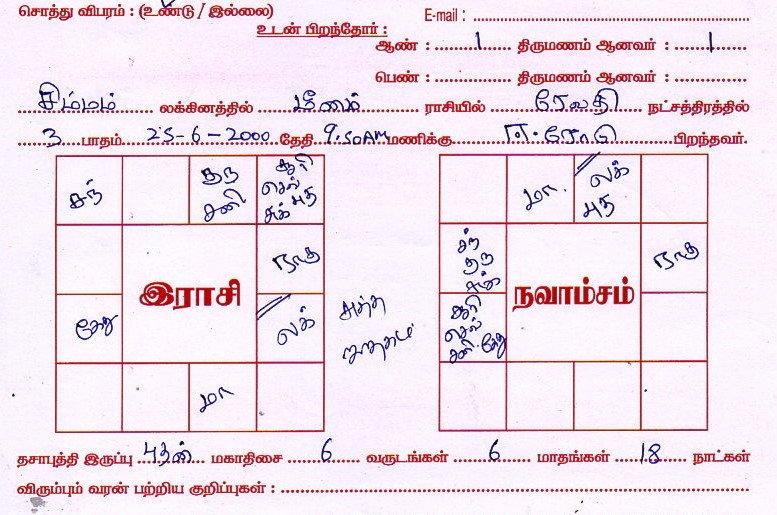 சொத்து விபரம் : (உண்டு / இல்லை) E-mail :
உடன் பிறந்தோர் :
ஆண் : 1 திருமணம் ஆனவர் : 1
பெண் : திருமணம் ஆனவர் :
சிம்மம் லக்கினத்தில் மீனம் ராசியில் ரேவதி நட்சத்திரத்தில்
3 பாதம் 25-6-2000 தேதி 9.50AM மணிக்கு ஈரோடு பிறந்தவர்.
சந்
குரு
சனி
சூரி
செவ்
சுக் புத
ராகு
இராசி
கேது
லக்
மா
சுத்த
ஜாதகம்
மா.
லக்
புத
சந்
குரு
சுக்
ராகு
நவாம்சம்
சூரி
செவ்
சனி.கேது
தசாபுத்தி இருப்பு புதன் மகாதிசை 6 வருடங்கள் 6 மாதங்கள் 18 நாட்கள்
விரும்பும் வரன் பற்றிய குறிப்புகள் :